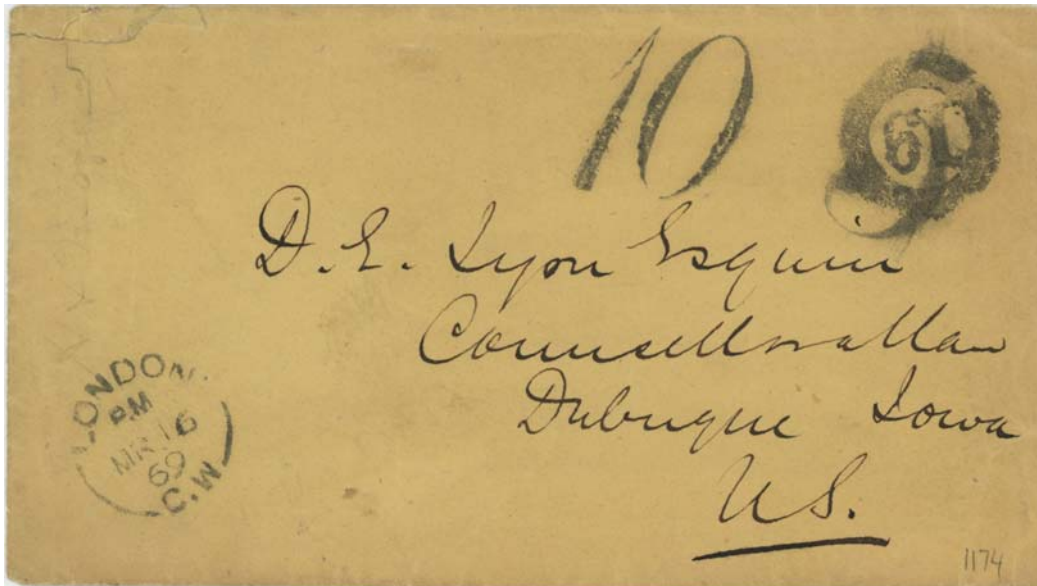 10
D. E. Lyon Esquire
Counsellor at Law
Dubuque Iowa
U.S.
LONDON.
PM
MR 16
69
C.W
1174